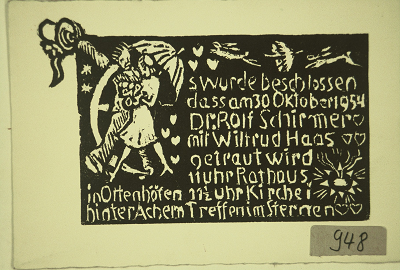 s wurde beschlossen
dass am 30 Oktober 1954
Dr. Rolf Schirmer
mit Wiltrud Haas
getraut wird
11 uhr Rathaus
in Ottenhöfen 11½ uhr Kirche
hinter Achern Treffen im Sternen
948